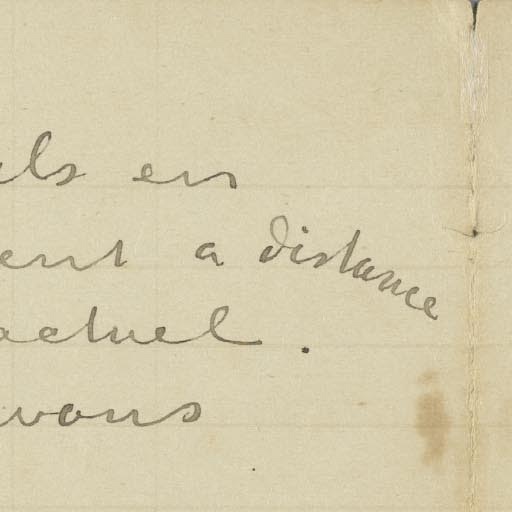 els en
ent a distance
actuel.
vons